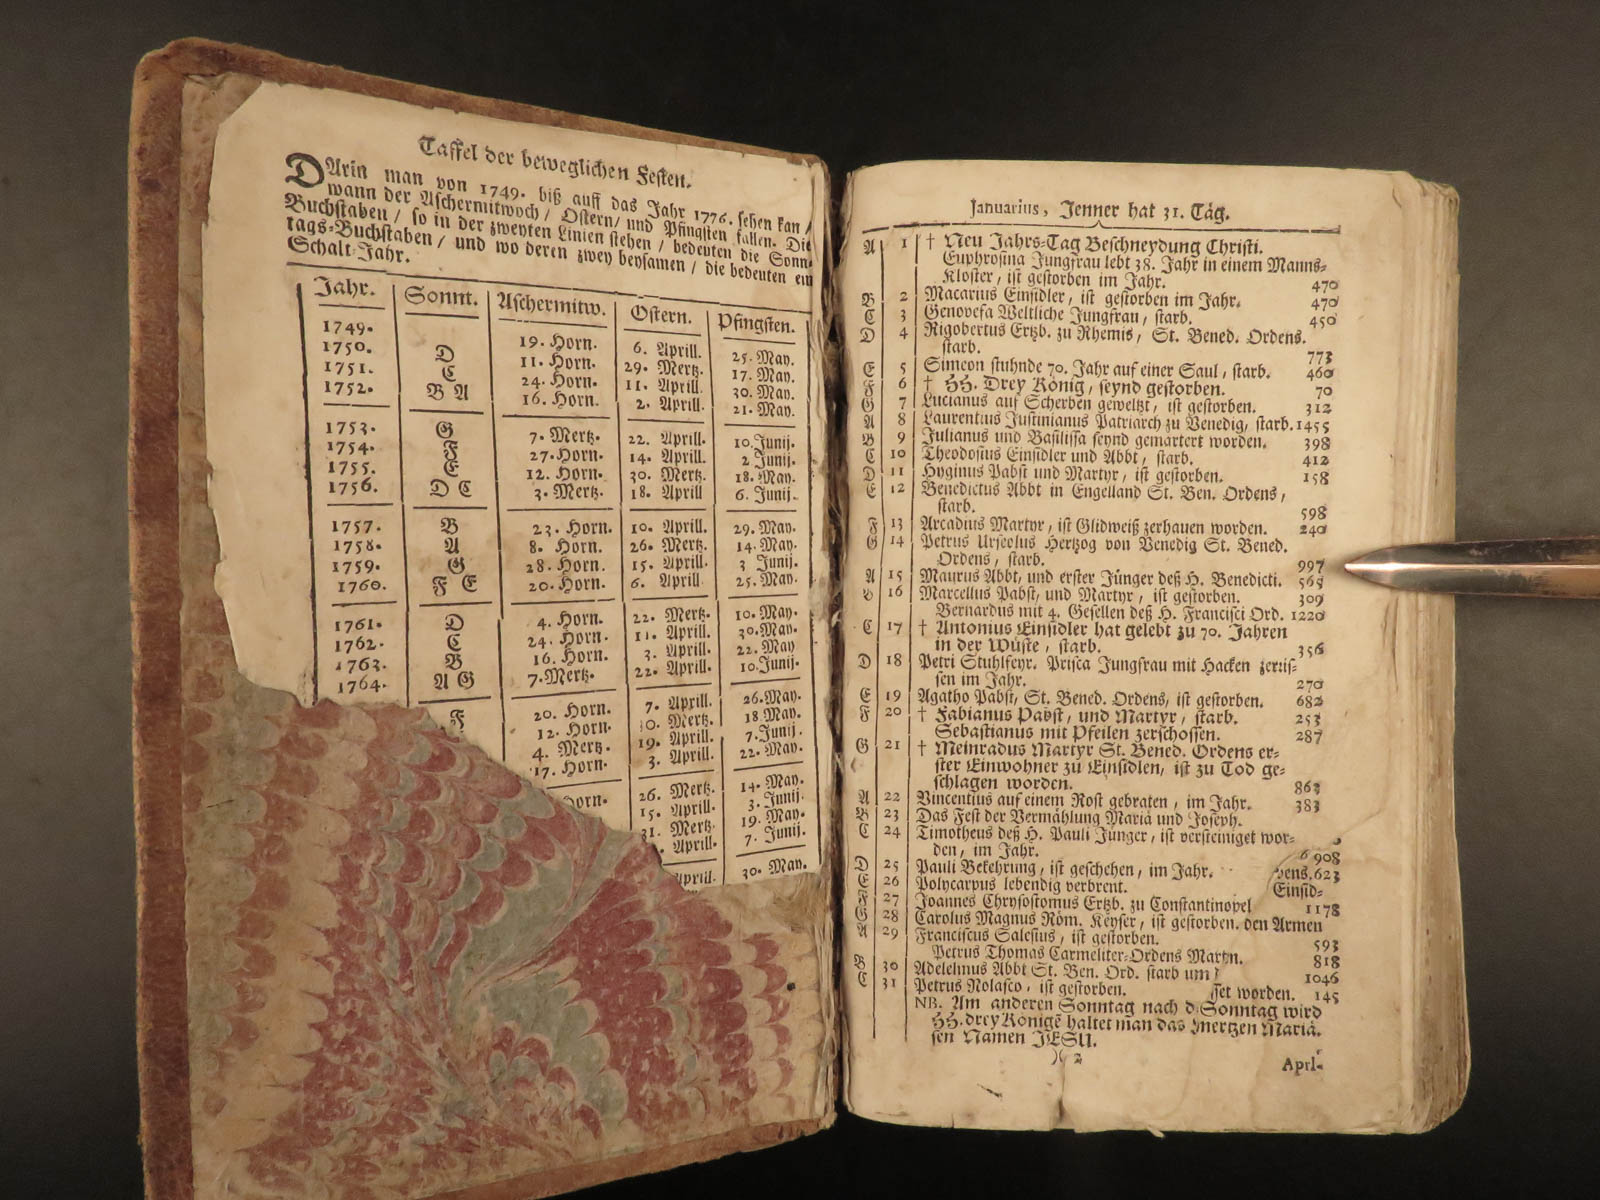 Taffel der beweglichen Festen.
DArin man von 1749. biß auff das Jahr 1776. sehen kan /
wann der Aschermitwoch / Ostern / und Pfingsten fallen. Die
Buchstaben / so in der zweyten Linien stehen / bedeuten die Sonn-
tags-Buchstaben / und wo deren zwey beysamen / die bedeuten ein
Schalt-Jahr.
Jahr. Sonnt. Aschermitw. Ostern. Pfingsten.
1749. 19. Horn. 6. Aprill. 25. May.
1750. D 11. Horn. 29. Mertz. 17. May.
1751. C 24. Horn. 11. Aprill. 30. May.
1752. B A 16. Horn. 2. Aprill. 21. May.
1753. G 7. Mertz. 22. Aprill. 10. Junij.
1754. 27. Horn. 14. Aprill. 2 Junij.
1755. E 12. Horn. 30. Mertz. 18. May.
1756. D C 3. Mertz. 18. Aprill 6. Junij.
1757. B 23. Horn. 10. Aprill. 29. May.
1758. A 8. Horn. 26. Mertz. 14. May.
1759. G 28. Horn. 15. Aprill. 3 Junij.
1760. F E 20. Horn. 6. Aprill 25. May.
1761. D 4. Horn. 22. Mertz. 10. May.
1762. C 24. Horn. 11. Aprill. 30. May.
1763. B 16. Horn. 3. Aprill. 22. May
1764. A G 7. Mertz. 22. Aprill. 10. Junij.
F 20. Horn. 7. Aprill. 26. May.
12. Horn. 30. Mertz. 18. May.
4. Mertz. 19. Aprill. 7. Junij.
17. Horn. 3. Aprill. 22. May.
Horn. 26. Mertz. 14. May.
15. Aprill. 3. Junij.
31. Mertz. 19. May.
Aprill. 7. Junij.
Aprill. 30. May.
Januarius, Jenner hat 31. Täg.
A 1 † Neu Jahrs-Tag Beschneydung Christi.
Euphrosina Jungfrau lebt 38. Jahr in einem Manns-
Kloster, ist gestorben im Jahr. 470
B 2 Macarius Einsidler, ist gestorben im Jahr. 470
C 3 Genovefa Weltliche Jungfrau, starb. 450
D 4 Rigobertus Ertzb. zu Rhemis, St. Bened. Ordens.
starb. 773
E 5 Simeon stuhnde 70. Jahr auf einer Saul, starb. 460
F 6 † HH. Drey König, seynd gestorben. 70
G 7 Lucianus auf Scherben geweltzt, ist gestorben. 312
A 8 Laurentius Justinianus Patriarch zu Venedig, starb. 1455
B 9 Julianus und Basilissa seynd gemartert worden. 398
C 10 Theodosius Einsidler und Abbt, starb. 412
D 11 Hyginus Pabst und Martyr, ist gestorben. 158
E 12 Benedictus Abbt in Engelland St. Ben. Ordens,
starb. 598
F 13 Arcadius Martyr, ist Glidweiß zerhauen worden. 240
G 14 Petrus Urseolus Hertzog von Venedig St. Bened.
Ordens, starb. 997
A 15 Maurus Abbt, und erster Jünger deß H. Benedicti. 565
B 16 Marcellus Pabst, und Martyr, ist gestorben. 309
Bernardus mit 4. Gesellen deß H. Francisci Ord. 1220
C 17 † Antonius Einsidler hat gelebt zu 70. Jahren
in der Wüste, starb. 356
D 18 Petri Stuhlfeyr. Prisca Jungfrau mit Hacken zeriis-
sen im Jahr. 270
E 19 Agatho Pabst, St. Bened. Ordens, ist gestorben. 682
F 20 † Fabianus Pabst, und Martyr, starb. 253
Sebastianus mit Pfeilen zerschossen. 287
G 21 † Meinradus Martyr St. Bened. Ordens er-
ster Einwohner zu Einsidlen, ist zu Tod ge-
schlagen worden. 863
A 22 Vincentius auf einem Rost gebraten, im Jahr. 383
B 23 Das Fest der Vermählung Mariä und Joseph.
C 24 Timotheus deß H. Pauli Jünger, ist versteiniget wor-
den, im Jahr. 908
D 25 Pauli Bekehrung, ist geschehen, im Jahr. bens. 623
E 26 Polycarpus lebendig verbrent. Einsid-
F 27 Joannes Chrysostomus Ertzb. zu Constantinopel 1178
G 28 Carolus Magnus Röm. Keyser, ist gestorben. den Armen
A 29 Franciscus Salesius, ist gestorben. 593
Petrus Thomas Carmeliter-Ordens Martyr. 818
B 30 Adelelmus Abbt St. Ben. Ord. starb um 1046
C 31 Petrus Nolasco, ist gestorben. set worden. 145
NB. Am anderen Sonntag nach d. Sonntag wird
HH. drey Könige haltet man das Hertzen Mariä.
sen Namen JESU.
)( 2
Apri-